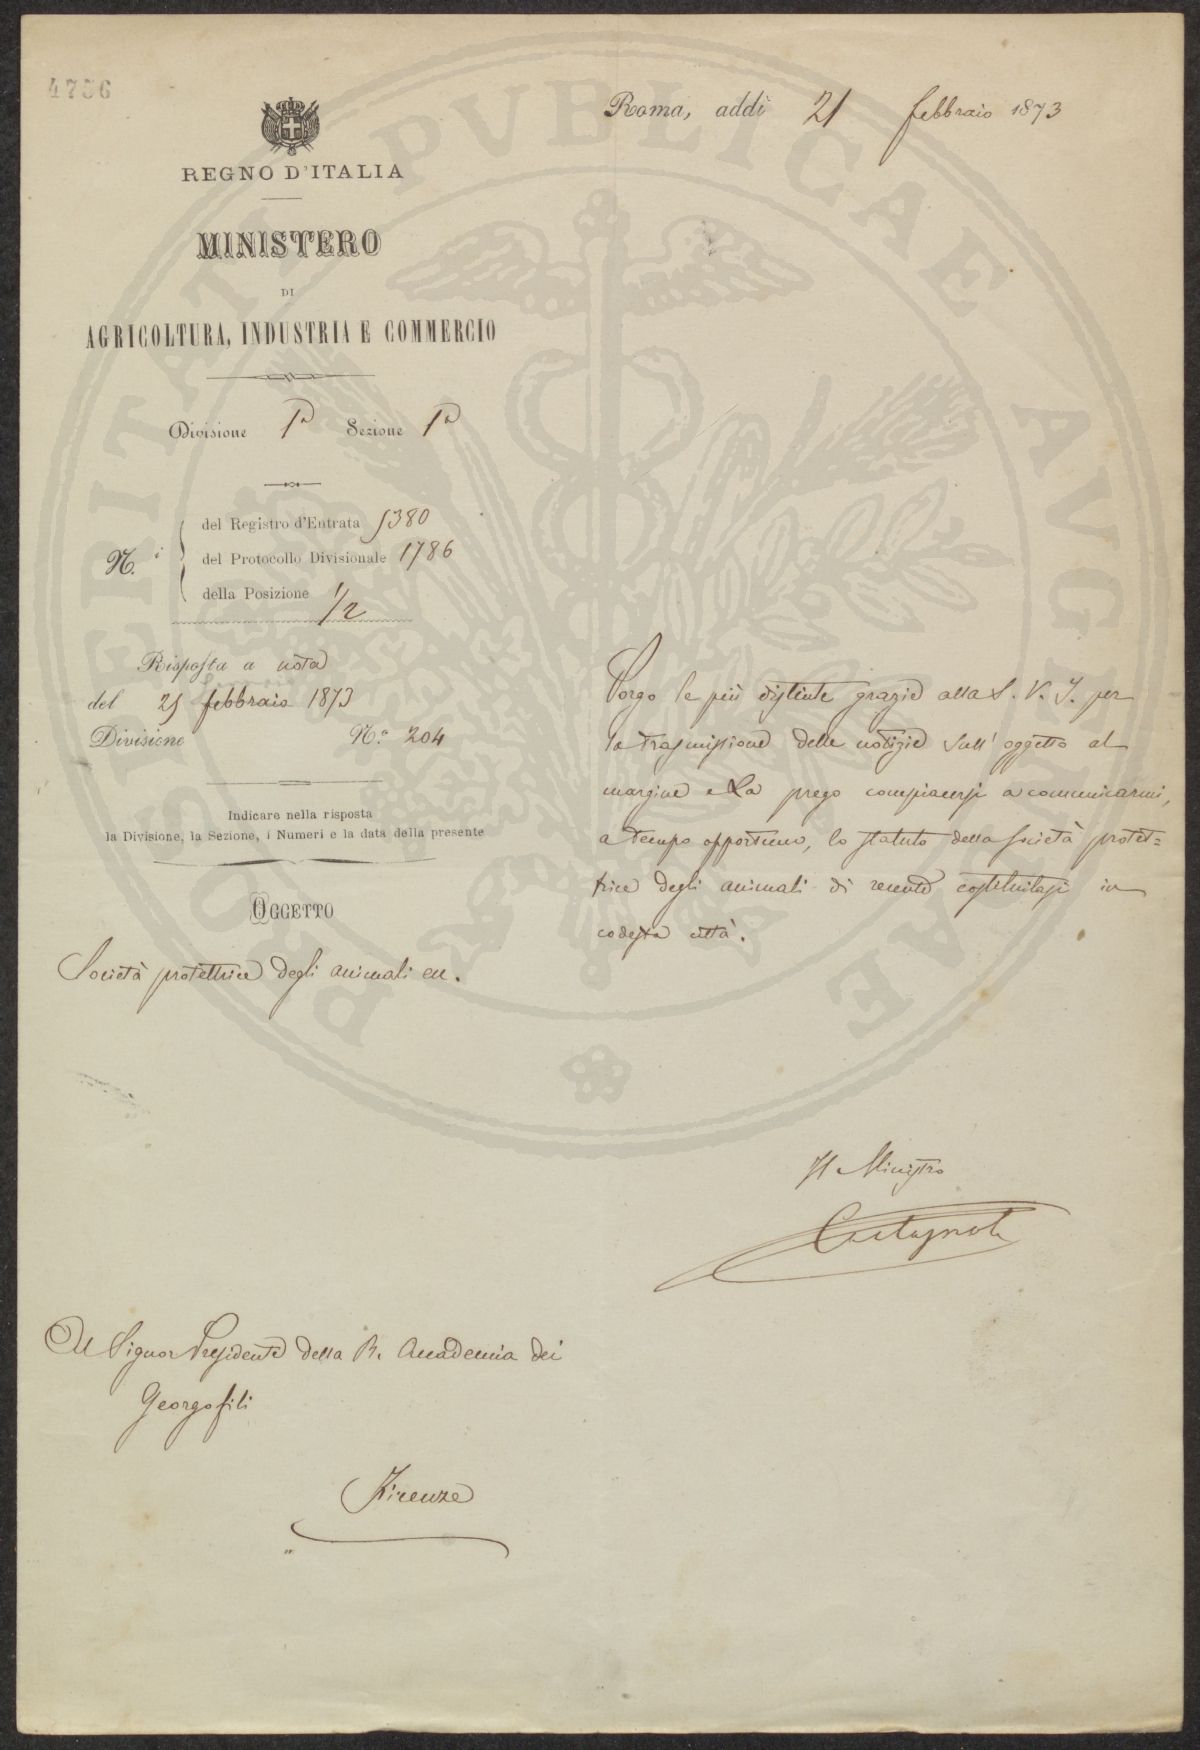 4756
Roma, addì 21 febbraio 1873
REGNO D'ITALIA
MINISTERO
DI
AGRICOLTURA, INDUSTRIA E COMMERCIO
Divisione 1ª Sezione 1ª
N.i
del Registro d'Entrata 5380
del Protocollo Divisionale 1786
della Posizione 1/2
Risposta a nota
del febbraio 1873
Divisione N.o 204
Indicare nella risposta
la Divisione, la Sezione, i Numeri e la data della presente
OGGETTO
Società protettrice degli animali
Porgo le più distinte grazie alla S. V. I. per
la trasmissione delle notizie sull'oggetto al
margine e La prego compiacersi a communicarmi,
a tempo opportuno, lo statuto della Società protet=
trice degli animali di recente costituitasi in
codesta città.
Il Ministro
Castagnola
Al Signor Presidente della R. Accademia dei
Georgofili
Firenze
PROSPERITATI PVBLICAE AVGENDAE